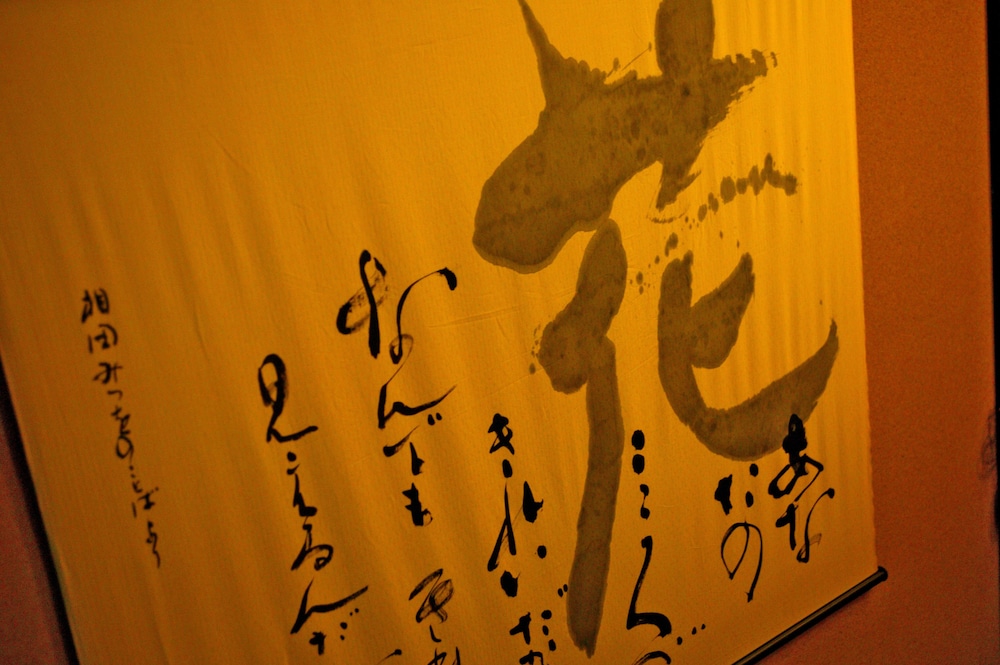 花
あな
たの
こころ
きれいだか
なんでも きれ
見えるんだ
相田みつをのことばより